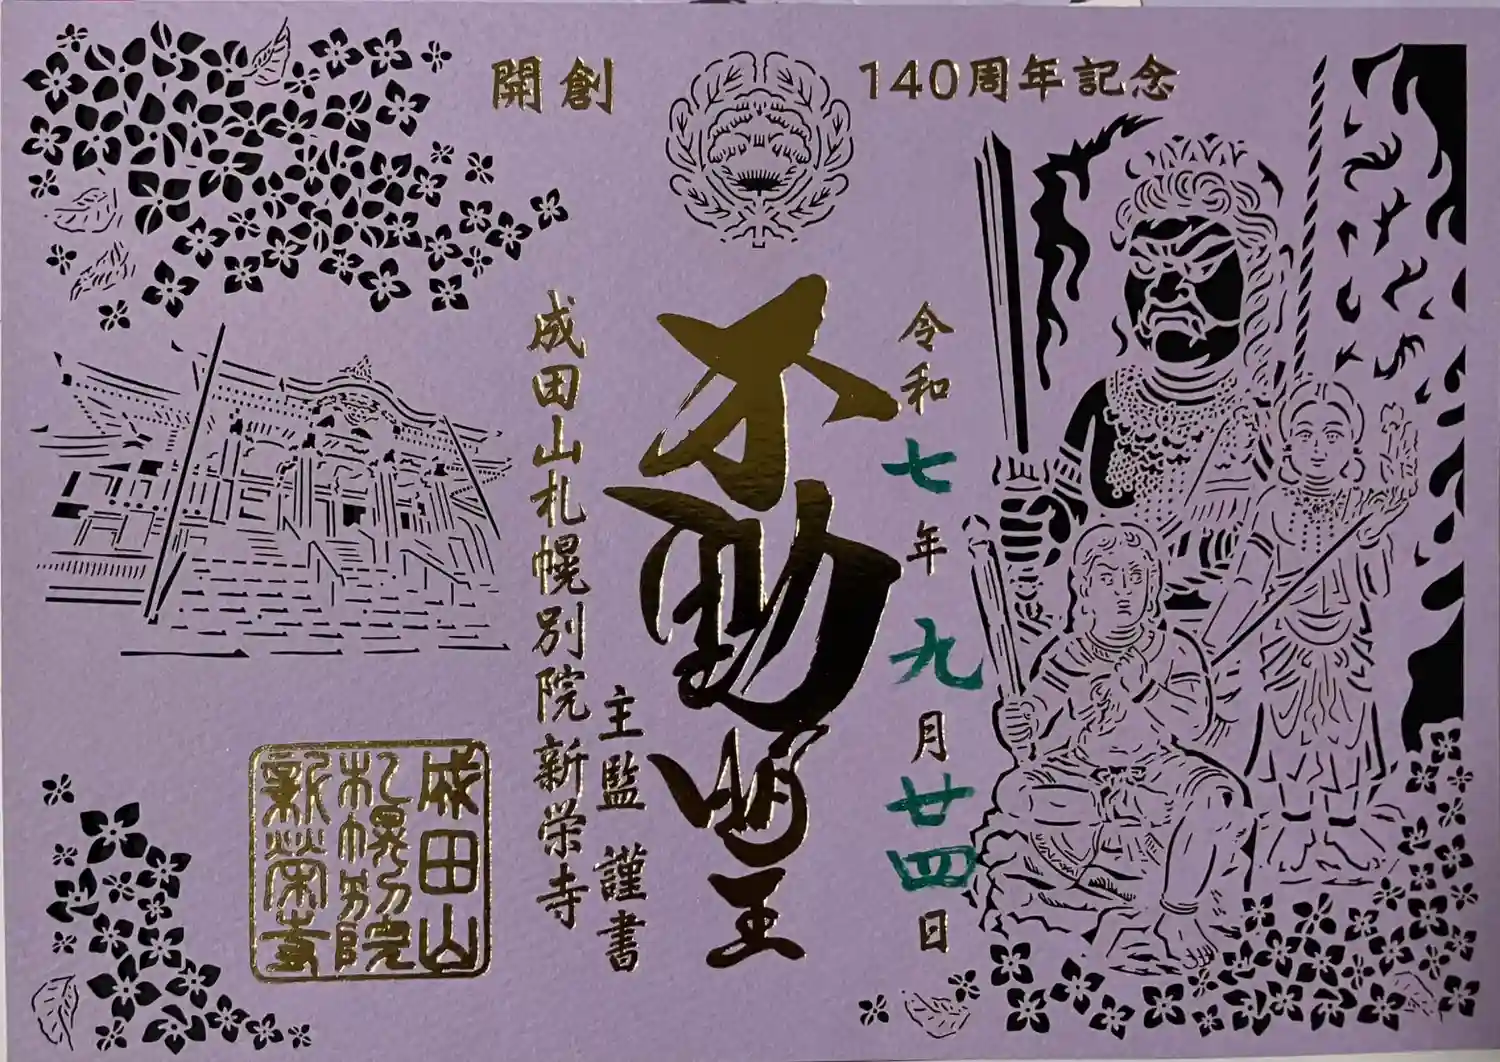 開創 140周年記念
令和七年九月廿四日
不動明王
主監 謹書
成田山札幌別院新栄寺
成田山
札幌別院
新榮寺